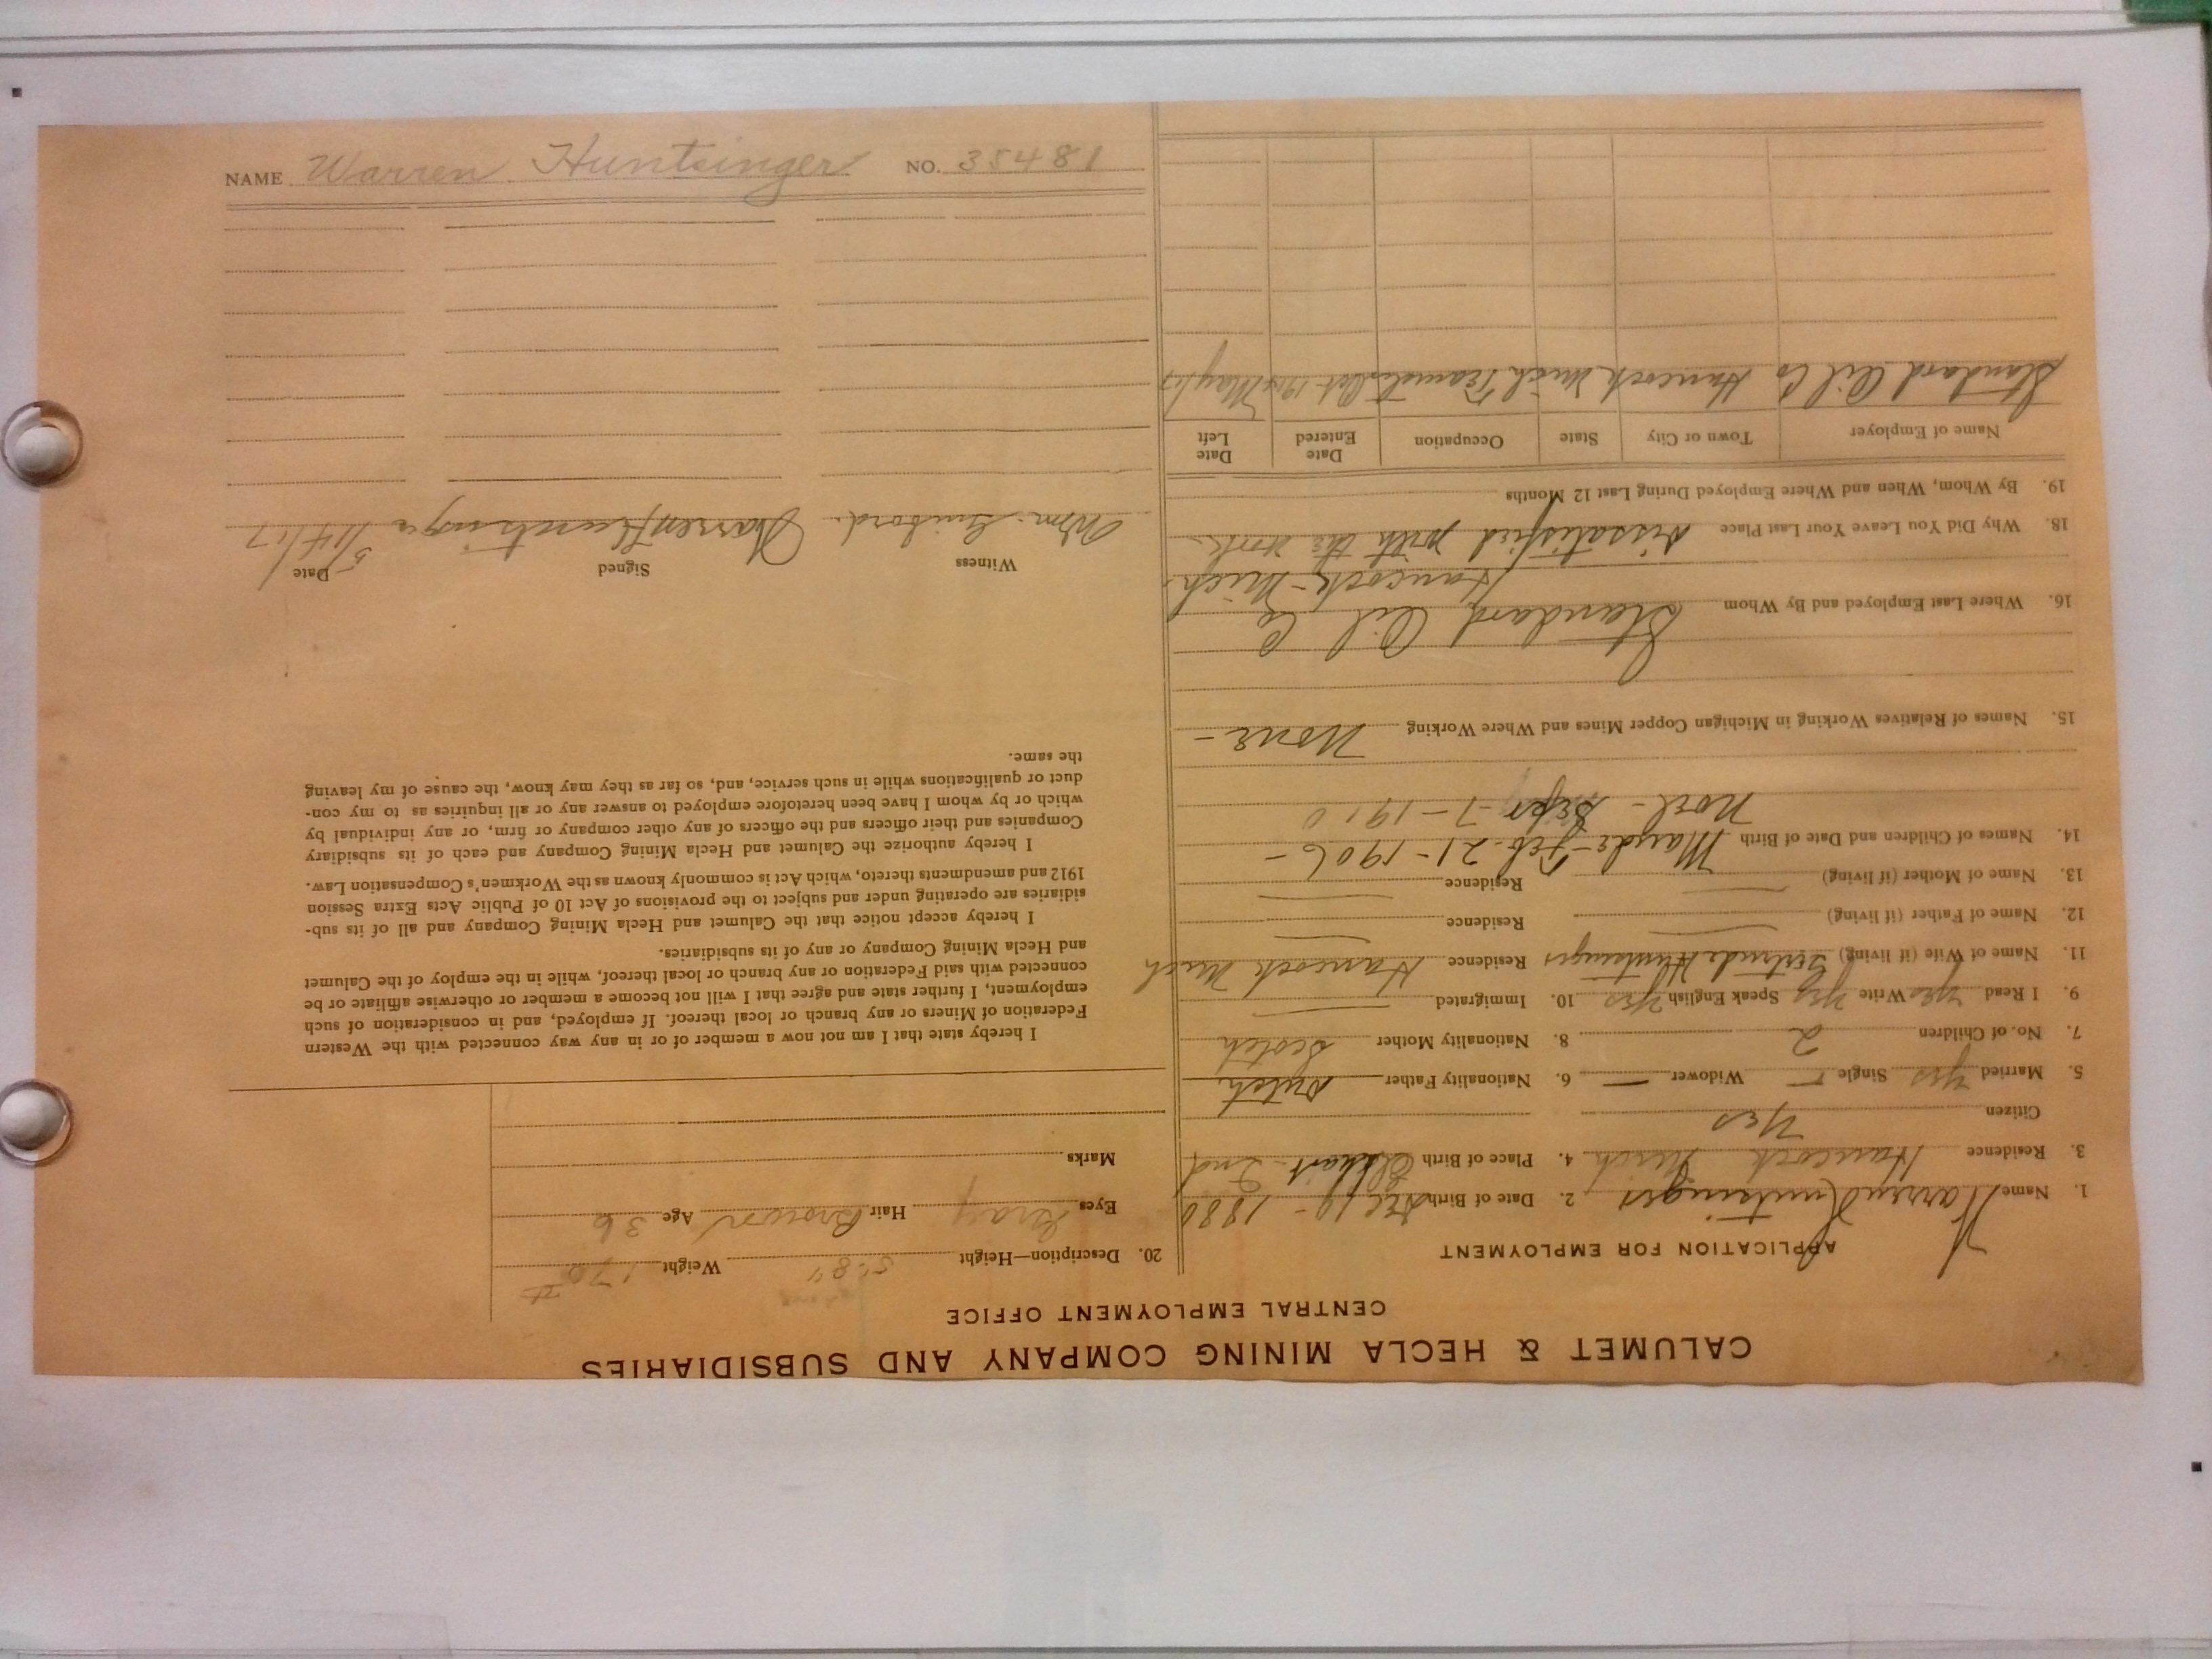 CALUMET & HECLA MINING COMPANY AND SUBSIDIARIES
CENTRAL EMPLOYMENT OFFICE
APPLICATION FOR EMPLOYMENT
1. Name Warren Huntsinger 2. Date of Birth Dec 10 - 1880
3. Residence Hancock Mich 4. Place of Birth Elkhart - Ind
Citizen Yes
5. Married Yes Single - Widower - 6. Nationality Father Dutch
7. No. of Children 2 8. Nationality Mother Scotch
9. I Read Yes Write Yes Speak English Yes 10. Immigrated
11. Name of Wife (if living) Gertrude Huntsinger Residence Hancock Mich
12. Name of Father (if living) Residence
13. Name of Mother (if living) Residence
14. Names of Children and Date of Birth Mayde - Feb. 21 - 1906 -
Noel - 7 - 1910
15. Names of Relatives Working in Michigan Copper Mines and Where Working None -
16. Where Last Employed and By Whom Standard Oil Co
Hancock - Mich.
18. Why Did You Leave Your Last Place Dissatisfied with the work
19. By Whom, When and Where Employed During Last 12 Months
Name of Employer Town or City State Occupation Date Entered Date Left
Standard Oil Co Hancock Mich Oct 1914 May/17
20. Description—Height 5'-8" Weight 170 #
Eyes Gray Hair Brown Age 36
Marks
I hereby state that I am not now a member of or in any way connected with the Western
Federation of Miners or any branch or local thereof. If employed, and in consideration of such
employment, I further state and agree that I will not become a member or otherwise affiliate or be
connected with said Federation or any branch or local thereof, while in the employ of the Calumet
and Hecla Mining Company or any of its subsidiaries.
I hereby accept notice that the Calumet and Hecla Mining Company and all of its sub-
sidiaries are operating under and subject to the provisions of Act 10 of Public Acts Extra Session
1912 and amendments thereto, which Act is commonly known as the Workmen's Compensation Law.
I hereby authorize the Calumet and Hecla Mining Company and each of its subsidiary
Companies and their officers and the officers of any other company or firm, or any individual by
which or by whom I have been heretofore employed to answer any or all inquiries as to my con-
duct or qualifications while in such service, and, so far as they may know, the cause of my leaving
the same.
Witness Signed Date
Wm. Guibord. Warren Huntsinger 5/14/17
NAME Warren Huntsinger NO. 35481